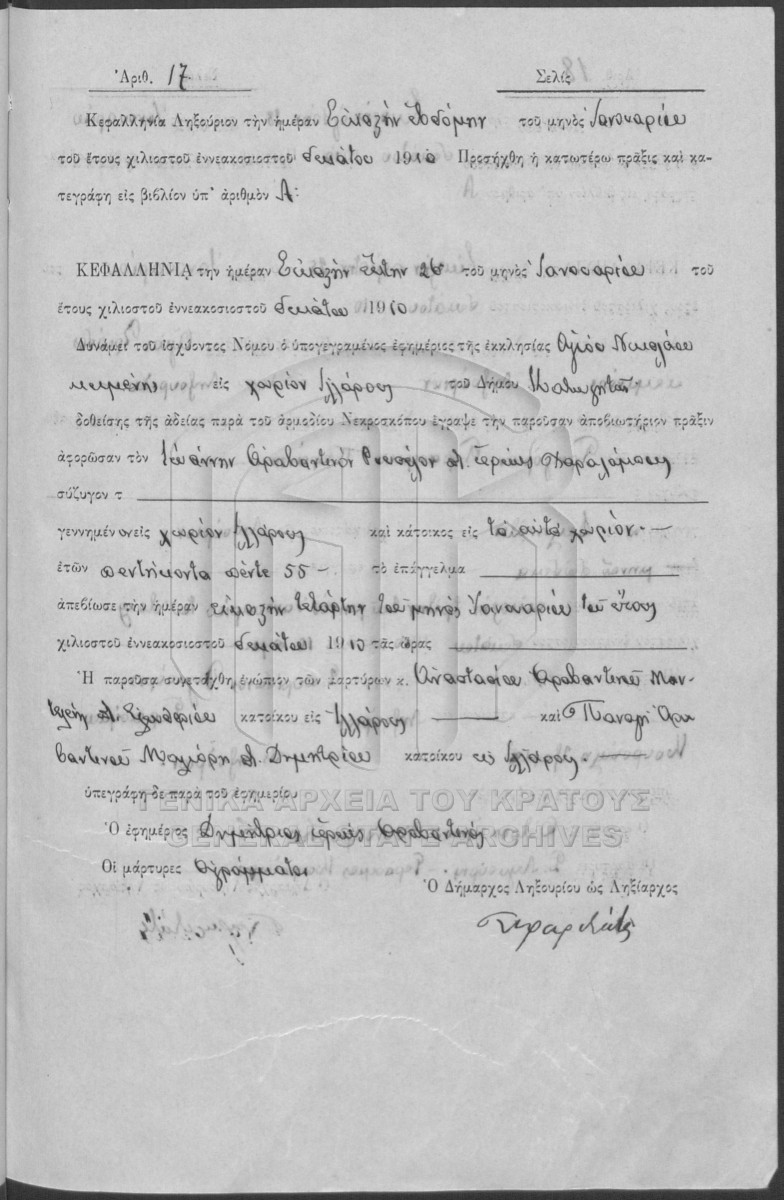 Ἀριθ. 17
Σελὶς
Κεφαλληνία Ληξούριον τὴν ἡμέραν Εἰκοστὴν ἑβδόμην τοῦ μηνὸς Ἰανουαρίου
τοῦ ἔτους χιλιοστοῦ ἐννεακοσιοστοῦ δεκάτου 1910 Προσήχθη ἡ κατωτέρω πρᾶξις καὶ κα-
τεγράφη εἰς βιβλίον ὑπ' ἀριθμὸν Α:
ΚΕΦΑΛΛΗΝΙΑ τὴν ἡμέραν Εἰκοστὴν ἕκτην 26 τοῦ μηνὸς Ἰανουαρίου τοῦ
ἔτους χιλιοστοῦ ἐννεακοσιοστοῦ δεκάτου 1910
Δυνάμει τοῦ ἰσχύοντος Νόμου ὁ ὑπογεγραμένος ἐφημέριος τῆς ἐκκλησίας Ἁγίου Νικολάου
κειμένης εἰς χωρίον Ἰλλάρους τοῦ Δήμου
δοθείσης τῆς ἀδείας παρὰ τοῦ ἁρμοδίου Νεκροσκόπου ἔγραψε τὴν παροῦσαν ἀποβιωτήριον πρᾶξιν
ἀφορῶσαν τὸν Ἰωάννην Ἀραβαντινὸν π. ἱερέως Χαραλάμπους
σύζυγον τ
γεννημένον εἰς χωρίον Ἰλλάρους καὶ κάτοικος εἰς τὸ αὐτὸ χωρίον.—
ἐτῶν πεντήκοντα πέντε 55 — τὸ ἐπάγγελμα
ἀπεβίωσε τὴν ἡμέραν εἰκοστὴν τετάρτην τοῦ μηνὸς Ἰανουαρίου τοῦ ἔτους
χιλιοστοῦ ἐννεακοσιοστοῦ δεκάτου 1910 τὰς ὥρας
Ἡ παροῦσα συνετάχθη ἐνώπιον τῶν μαρτύρων κ. Ἀναστασίου Ἀραβαντινοῦ
π. Ἐλευθερίου κατοίκου εἰς Ἰλλάρους — καὶ Παναγῆ Ἀρα
βαντινοῦ π. Δημητρίου κατοίκου εἰς Ἰλλάρους.
ὑπεγράφη δὲ παρὰ τοῦ ἐφημερίου
ΓΕΝΙΚΑ ΑΡΧΕΙΑ ΤΟΥ ΚΡΑΤΟΥΣ
GENERAL STATE ARCHIVES
Ὁ ἐφημέριος Δημήτριος ἱερεὺς Ἀραβαντινὸς
Οἱ μάρτυρες Ἀγράμματοι
Ὁ Δήμαρχος Ληξουρίου ὡς Ληξίαρχος